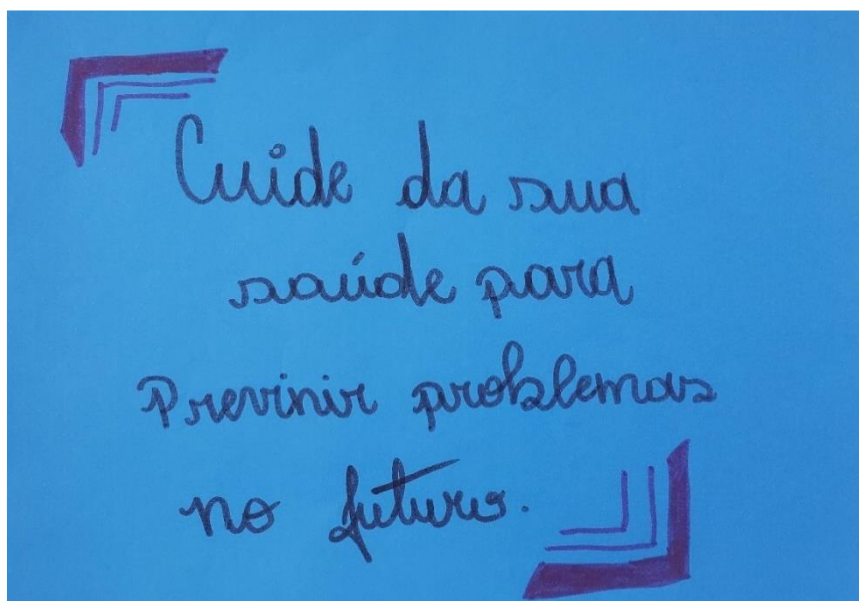 Cuide da sua
saúde para
Previnir problemas
no futuro.